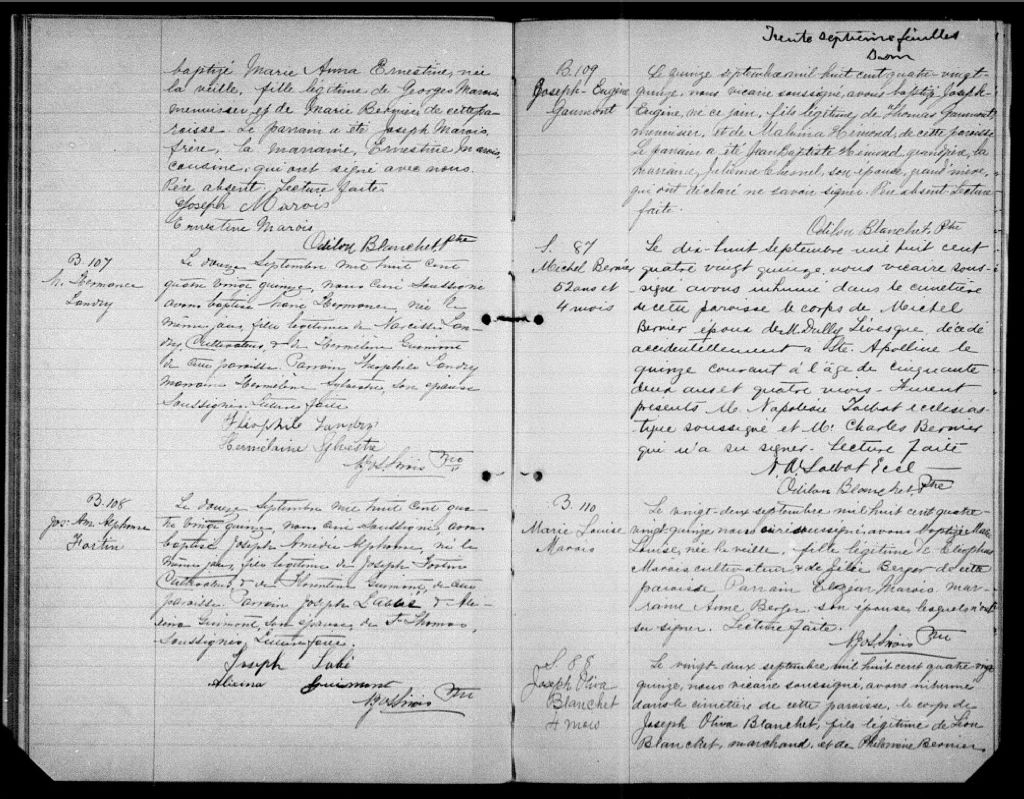 baptizé Marie Anna Ernestine, née
la veille, fille légitime de Georges Marois,
menuisier, et de Marie Bernier de cette pa-
roisse. Le parrain a été Joseph Marois,
frère, la marraine, Ernestine Marois,
cousine, qui ont signé avec nous.
Père absent, Lecture faite.
Joseph Marois
Ernestine Marois
Odilon Blanchet, Ptre
B 107
M. Hermance
Landry
Le douze Septembre mil huit cent
quatre vingt quinze, nous curé soussigné
avons baptisé Marie Hermance, née le
même jour, fille légitime de Narcisse Lan-
dry, Cultivateur, & de Hermeline Guimont
de cette paroisse. Parrain Théophile Landry
marraine Hermeline Sylvestre, son épouse
soussignés. Lecture faite
Théophile Landry
Hermilaine Sylvestre
Ptre
B. 108
Jos. Am. Alphonse
Fortin
Le douze Septembre mil huit cent qua-
tre vingt quinze, nous curé soussigné, avons
baptisé Joseph Amédée Alphonse, né le
même jour, fils légitime de Joseph Fortin
Cultivateur, & de Florentine Guimont, de cette
paroisse. Parrain Joseph Labbé & Ale-
xina Guimont, son épouse, de St Thomas,
soussignés. Lecture faite.
Joseph Labé
Alixina Guimont
Ptre
Trente septième feuillet
B. 109
Joseph-Eugène
Gaumont
Le quinze septembre mil huit cent quatre-vingt-
quinze, nous vicaire soussigné, avons baptizé Joseph-
Eugène, né ce jour, fils légitime de Thomas Gaumont,
menuisier, et de Malvina Hémond, de cette paroisse.
Le parrain a été Jean Baptiste Hémond, grandpère, la
marraine, Julienne Chamel, son épouse, grand'mère,
qui ont déclaré ne savoir signer. Père absent. Lecture
faite.
Odilon Blanchet, Ptre
S. 87
Michel Bernier
52 ans et
4 mois
Le dix-huit Septembre mil huit cent
quatre vingt quinze, nous vicaire sous-
signé avons inhumé dans le cimetière
de cette paroisse le corps de Michel
Bernier époux de M. Dully Lévesque, décédé
accidentellement a Ste. Apolline le
quinze courant à l'âge de cinquante
deux ans et quatre mois. Furent
présents M. Napoléon Talbot ecclésias-
tique soussigné et Mr Charles Bernier
qui n'a su signer. Lecture faite
N. A. Talbot Eccl
Odilon Blanchet, Ptre
B. 110
Marie Louise
Marois
Le vingt-deux septembre mil huit cent quatre-
vingt-quinze nous curé soussigné, avons baptizé Marie
Louise, née la veille, fille légitime de Cléophas
Marois cultivateur & de Célie Berger de cette
paroisse Parrain Elzéar Marois mar-
raine Anne Berger son épouse, lesquels n'ont
su signer. Lecture faite.
Ptre
S. 88
Joseph Oliva
Blanchet
4 mois
Le vingt-deux septembre, mil huit cent quatre vingt
quinze, nous vicaire soussigné, avons inhumé
dans le cimetière de cette paroisse, le corps de
Joseph Oliva Blanchet, fils légitime de Léon
Blanchet, marchand, et de Philomène Bernier,